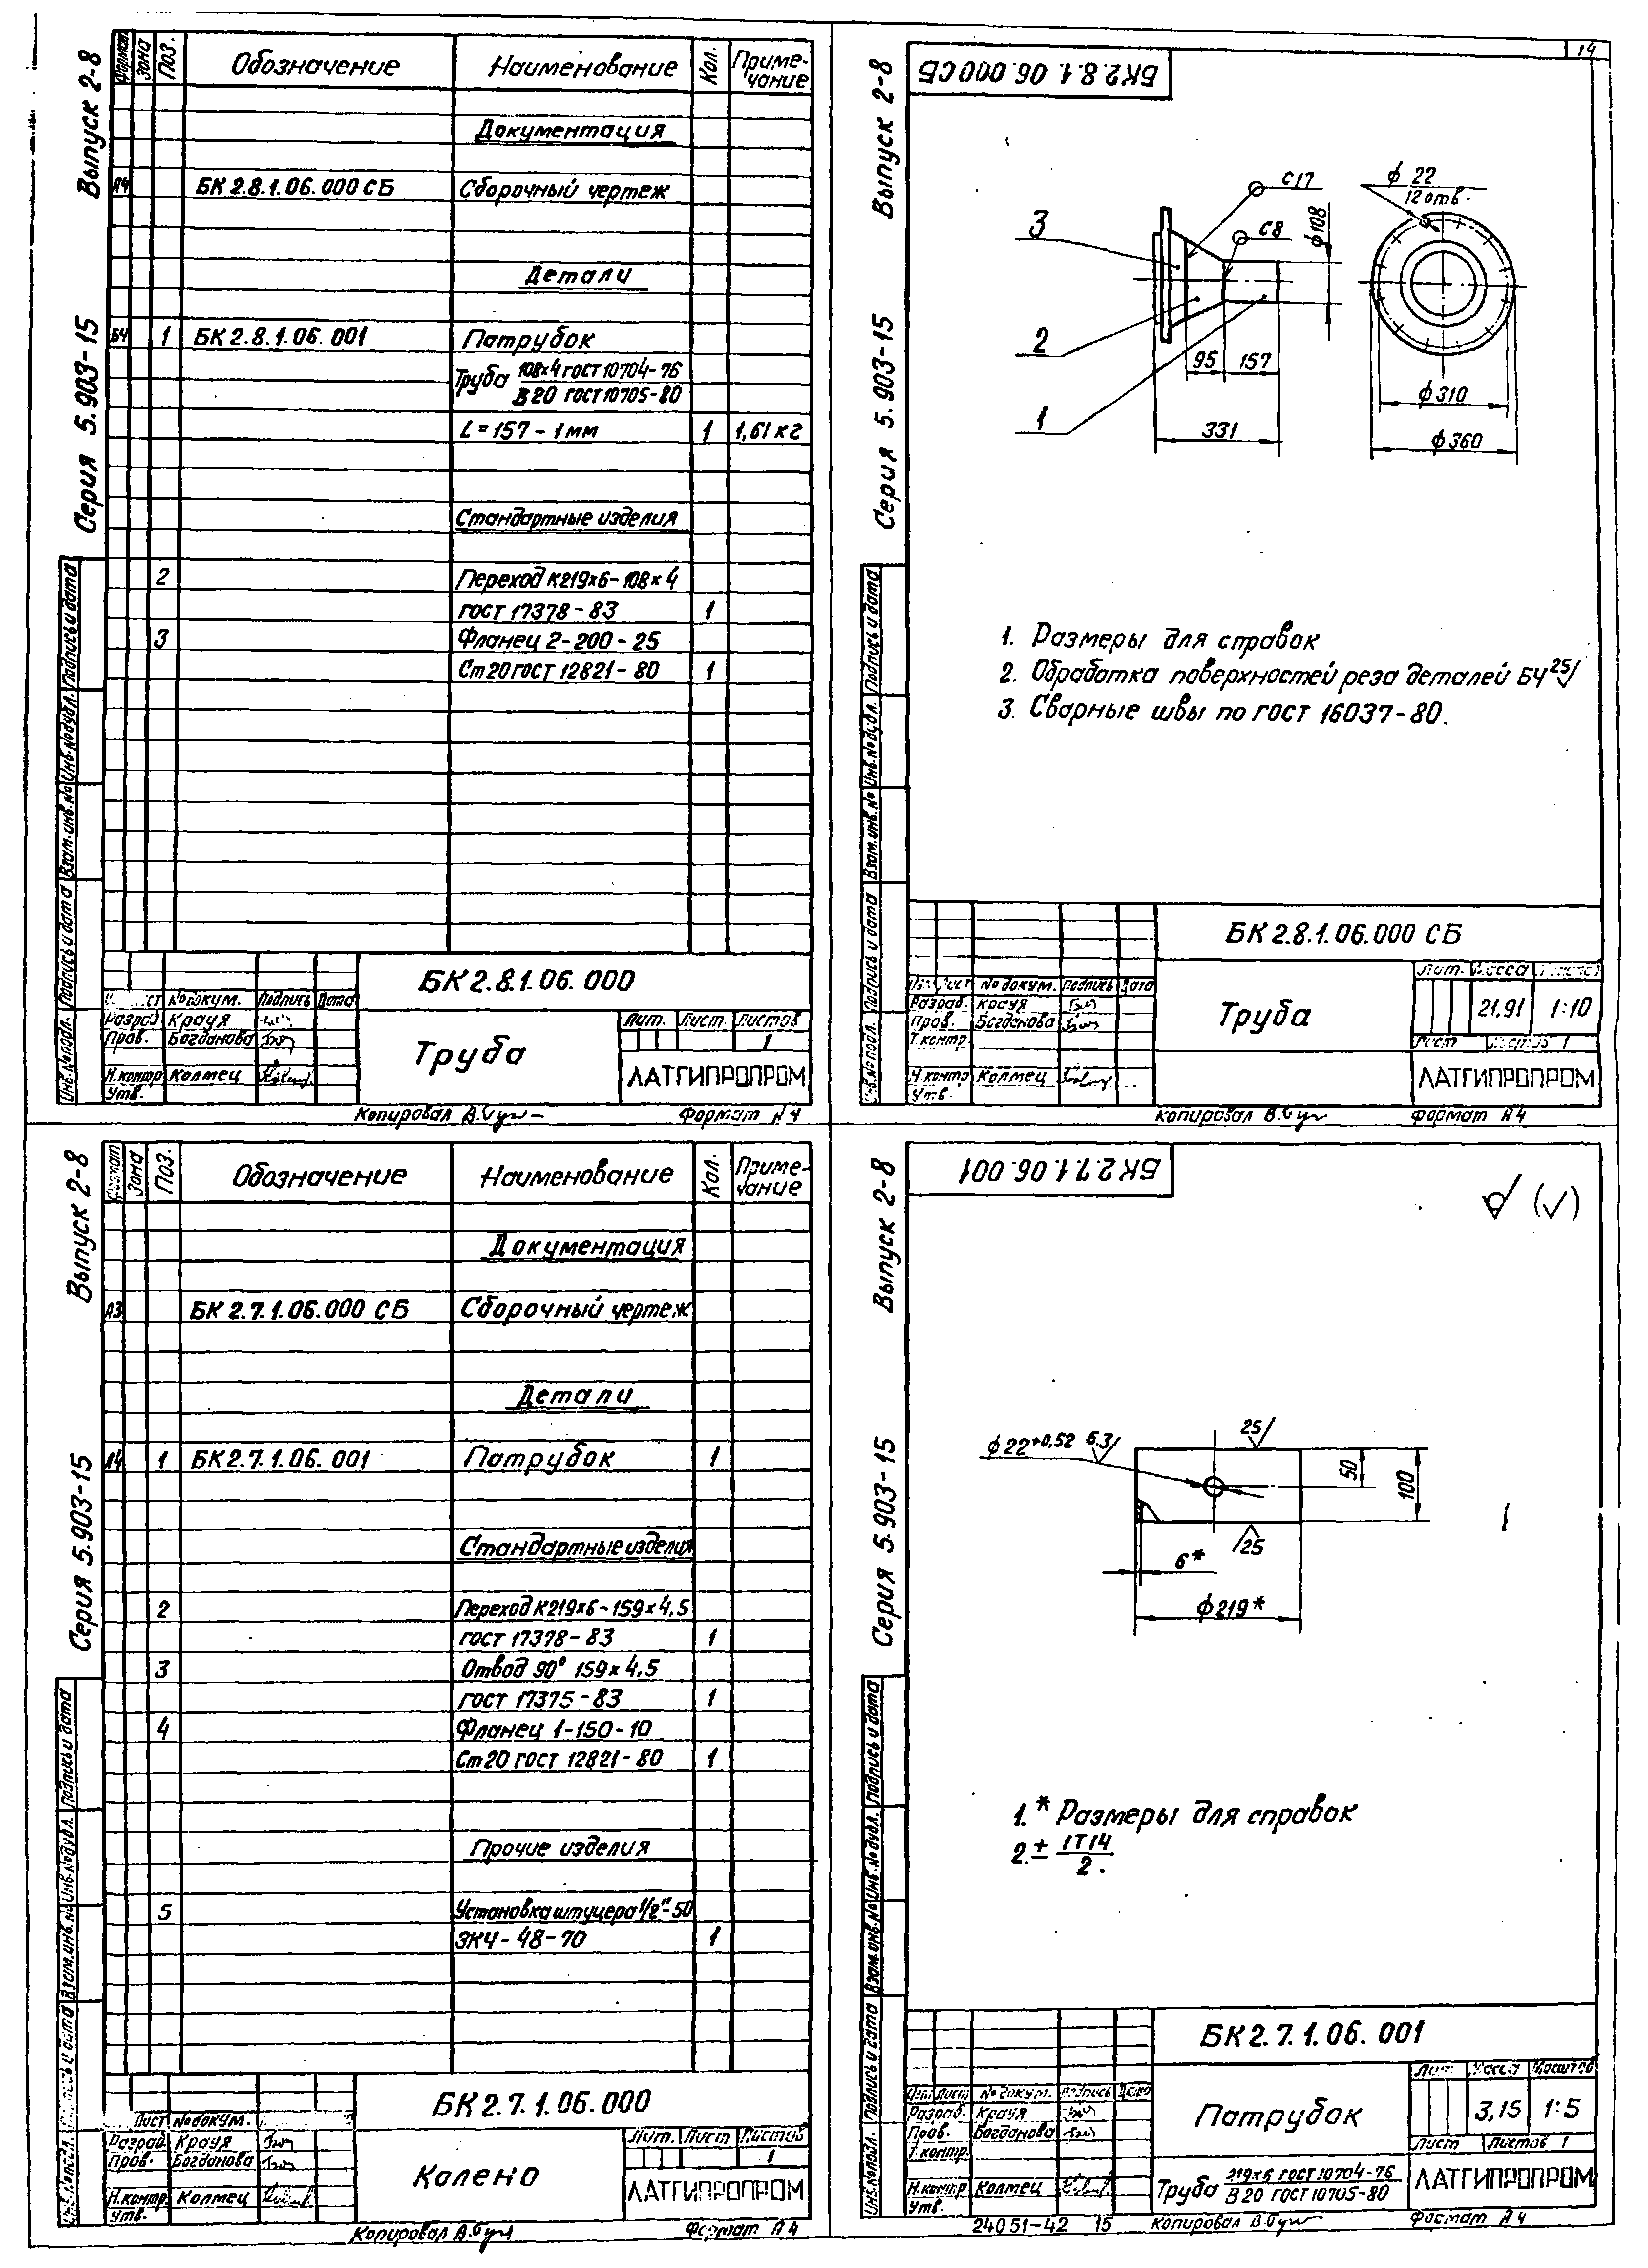 Выпуск 2-8
Серия 5.903-15
Формат Зона Поз. Обозначение Наименование Кол. Приме-
чание
Документация
А4 БК 2.8.1.06.000 СБ Сборочный чертеж
Детали
БЧ 1 БК 2.8.1.06.001 Патрубок
Труба 108х4 ГОСТ 10704-76
В 20 ГОСТ 10705-80
L = 157 - 1 мм 1 1,61 кг
Стандартные изделия
2 Переход К219х6-108х4
ГОСТ 17378-83 1
3 Фланец 2-200-25
Ст 20 ГОСТ 12821-80 1
Инв.№подл. Подпись и дата Взам.инв.№ Инв.№дубл. Подпись и дата
БК 2.8.1.06.000
№ докум. Подпись Дата
Разраб. Крауя
Пров. Богданова
Н.контр. Колмец
Утв.
Труба
Лит. Лист Листов
1
ЛАТГИПРОПРОМ
Копировал Формат А4
14
Выпуск 2-8
Серия 5.903-15
БК 2.8.1.06.000 СБ
С17
С8
3
2
1
ф 22
12 отв.
ф108
95 157
331
ф310
ф360
1. Размеры для справок
2. Обработка поверхностей реза деталей БЧ 25/
3. Сварные швы по ГОСТ 16037-80.
Инв.№подл. Подпись и дата Взам.инв.№ Инв.№дубл. Подпись и дата
БК 2.8.1.06.000 СБ
Лист № докум. Подпись Дата
Разраб. Крауя
Пров. Богданова
Т.контр.
Н.контр. Колмец
Утв.
Труба
Лит. Масса Масштаб
21.91 1:10
Лист Листов 1
ЛАТГИПРОПРОМ
Копировал Формат А4
Выпуск 2-8
Серия 5.903-15
Формат Зона Поз. Обозначение Наименование Кол. Приме-
чание
Документация
А3 БК 2.7.1.06.000 СБ Сборочный чертеж
Детали
А4 1 БК 2.7.1.06.001 Патрубок 1
Стандартные изделия
2 Переход К219х6-159х4,5
ГОСТ 17378-83 1
3 Отвод 90° 159х4,5
ГОСТ 17375-83 1
4 Фланец 1-150-10
Ст 20 ГОСТ 12821-80 1
Прочие изделия
5 Установка штуцера 1/2"-50
ЗК4-48-70 1
Взам.инв.№ Инв.№дубл. Подпись и дата
БК 2.7.1.06.000
Лист № докум.
Разраб. Крауя
Пров. Богданова
Н.контр. Колмец
Утв.
Колено
Лит. Лист Листов
1
ЛАТГИПРОПРОМ
Копировал Формат А4
Выпуск 2-8
Серия 5.903-15
БК 2.7.1.06.001
(√)
ф22+0,52 6,3/
25/
50
100
25
6*
ф219*
1.* Размеры для справок
2. ± IT14
2.
Инв.№подл. Подпись и дата Взам.инв.№ Инв.№дубл. Подпись и дата
БК 2.7.1.06.001
Изм. Лист № докум. Подпись Дата
Разраб. Крауя
Пров. Богданова
Т.контр.
Н.контр. Колмец
Утв.
Патрубок
Лит. Масса Масштаб
3,15 1:5
Лист Листов 1
Труба 219х6 ГОСТ 10704-76
В 20 ГОСТ 10705-80
ЛАТГИПРОПРОМ
24051-42 15 Копировал Формат А4